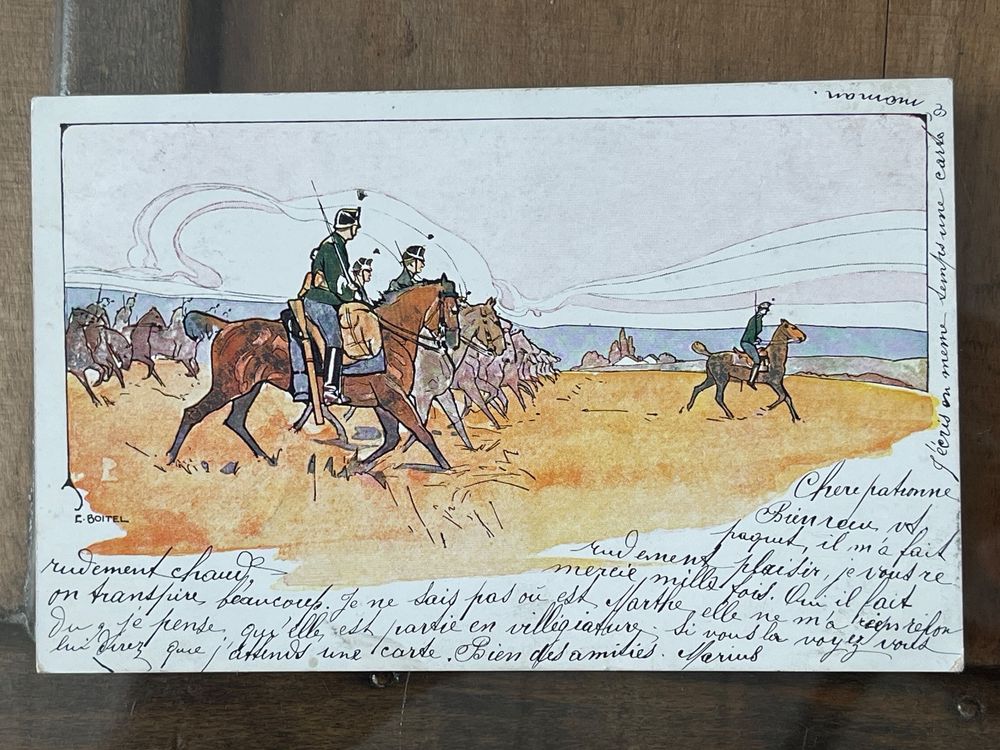 C. BOITEL
Chere patronne
Bien recu vt
paquet, il m'a fait
rudement plaisir, je vous re
mercie mille fois. Oui il fait
rudement chaud,
on transpire beaucoup. Je ne sais pas où est Marthe, elle ne m'a rien répon
du, je pense qu'elle est partie en villégiature. Si vous la voyez vous
lui direz que j'attends une carte. Bien des amitiés. Marius
J'écris en meme temps une carte à
moman.